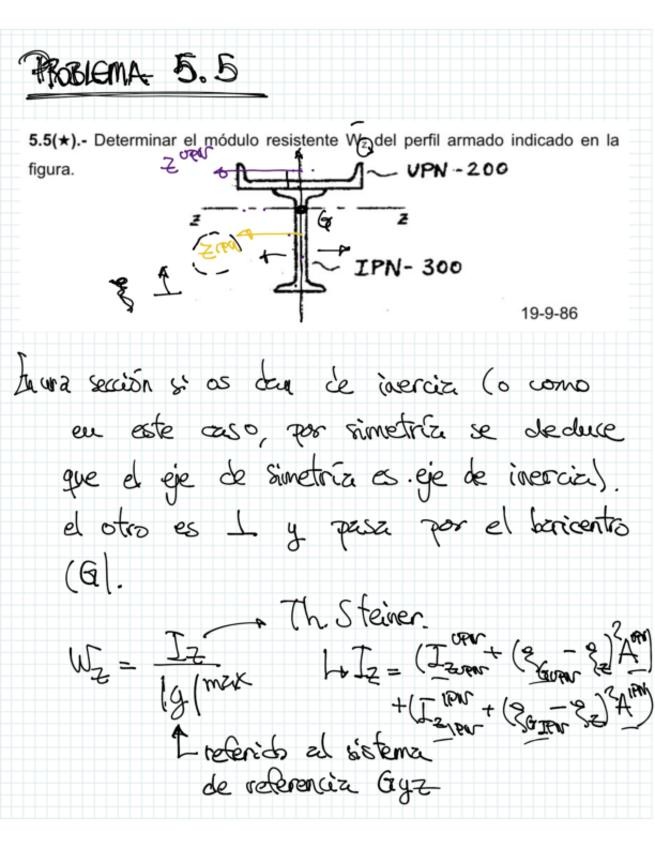 PROBLEMA 5.5
5.5(★).- Determinar el módulo resistente Wz del perfil armado indicado en la
figura.
z UPN
UPN-200
z
G
z
z IPN
IPN-300
ξ
19-9-86
En una sección si os dan de inercia (o como
en este caso, por simetría se deduce
que el eje de simetría es eje de inercia).
el otro es ⊥ y pasa por el baricentro
(G).
Th. Steiner.
Wz = Iz / |y|max
↳ Iz = (I zUPN UPN + (ξGUPN - ξz)² A UPN)
+ (I zIPN IPN + (ξGIPN - ξz)² A IPN)
referido al sistema
de referencia Gyz